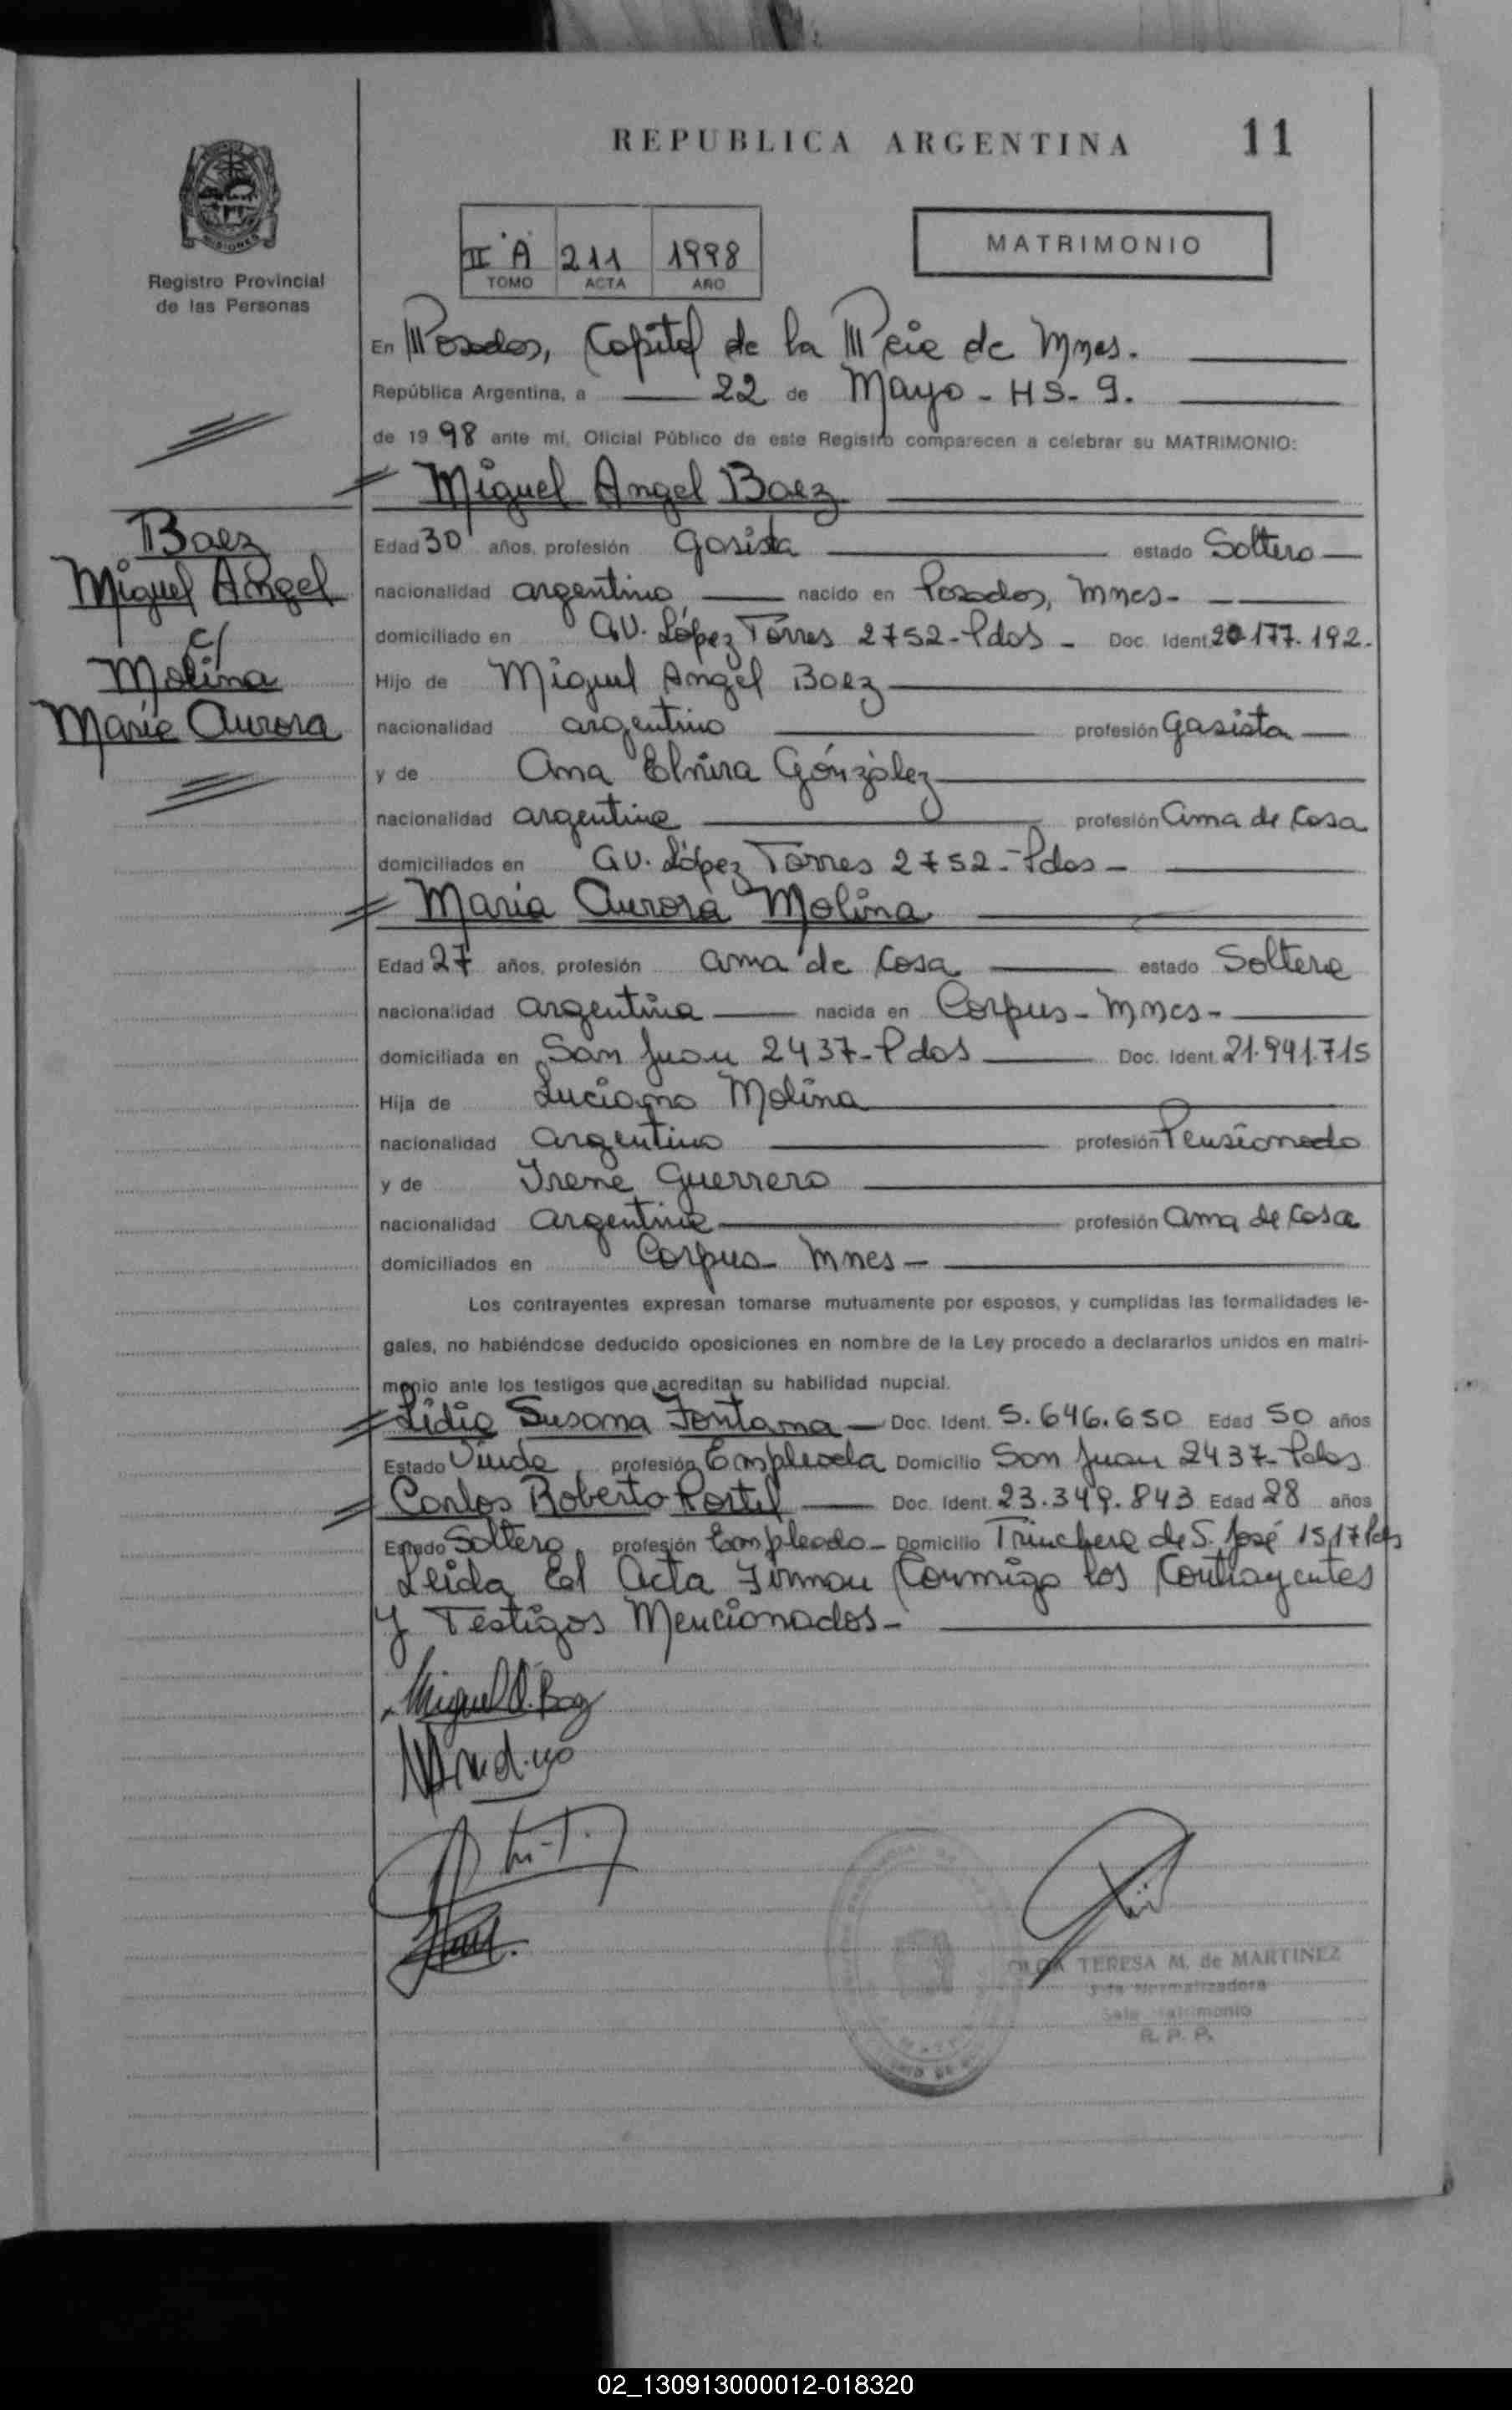 REPUBLICA ARGENTINA 11
MISIONES
Registro Provincial
de las Personas
II "A" 211 1998
TOMO ACTA AÑO
MATRIMONIO
En Posadas, Capital de la Pcia de Mnes.
República Argentina, a 22 de Mayo - HS- 9.
de 19 98 ante mí, Oficial Público de este Registro comparecen a celebrar su MATRIMONIO:
Miguel Angel Baez
Baez
Miguel Angel
c/
Molina
Maria Aurora
Edad 30 años, profesión gasista estado Soltero
nacionalidad argentino nacido en Posadas, Mnes-
domiciliado en Av. López Torres 2752-Pdas - Doc. Ident. 20.177.192.
Hijo de Miguel Angel Baez
nacionalidad argentino profesión gasista
y de Ana Elvira González
nacionalidad argentina profesión ama de casa
domiciliados en Av. López Torres 2752-Pdas-
Maria Aurora Molina
Edad 27 años, profesión ama de casa estado Soltera
nacionalidad argentina nacida en Corpus- Mnes-
domiciliada en San Juan 2437-Pdas Doc. Ident. 21.941.715
Hija de Luciano Molina
nacionalidad argentino profesión Pensionado
y de Irene Guerrero
nacionalidad argentina profesión ama de casa
domiciliados en Corpus- Mnes-
Los contrayentes expresan tomarse mutuamente por esposos, y cumplidas las formalidades le-
gales, no habiéndose deducido oposiciones en nombre de la Ley procedo a declararlos unidos en matri-
monio ante los testigos que acreditan su habilidad nupcial.
Lidia Susana Fontana Doc. Ident. 5.646.650 Edad 50 años
Estado Viuda profesión Empleada Domicilio San Juan 2437-Pdas
Carlos Roberto Portel Doc. Ident. 23.349.843 Edad 28 años
Estado Soltero profesión Empleado- Domicilio Trinchera de S. José 1517 Pdas
Leida El Acta Firman Conmigo los Contrayentes
y Testigos Mencionados-
Miguel A. Baez
TERESA M. de MARTINEZ
R. P. P.
02_130913000012-018320